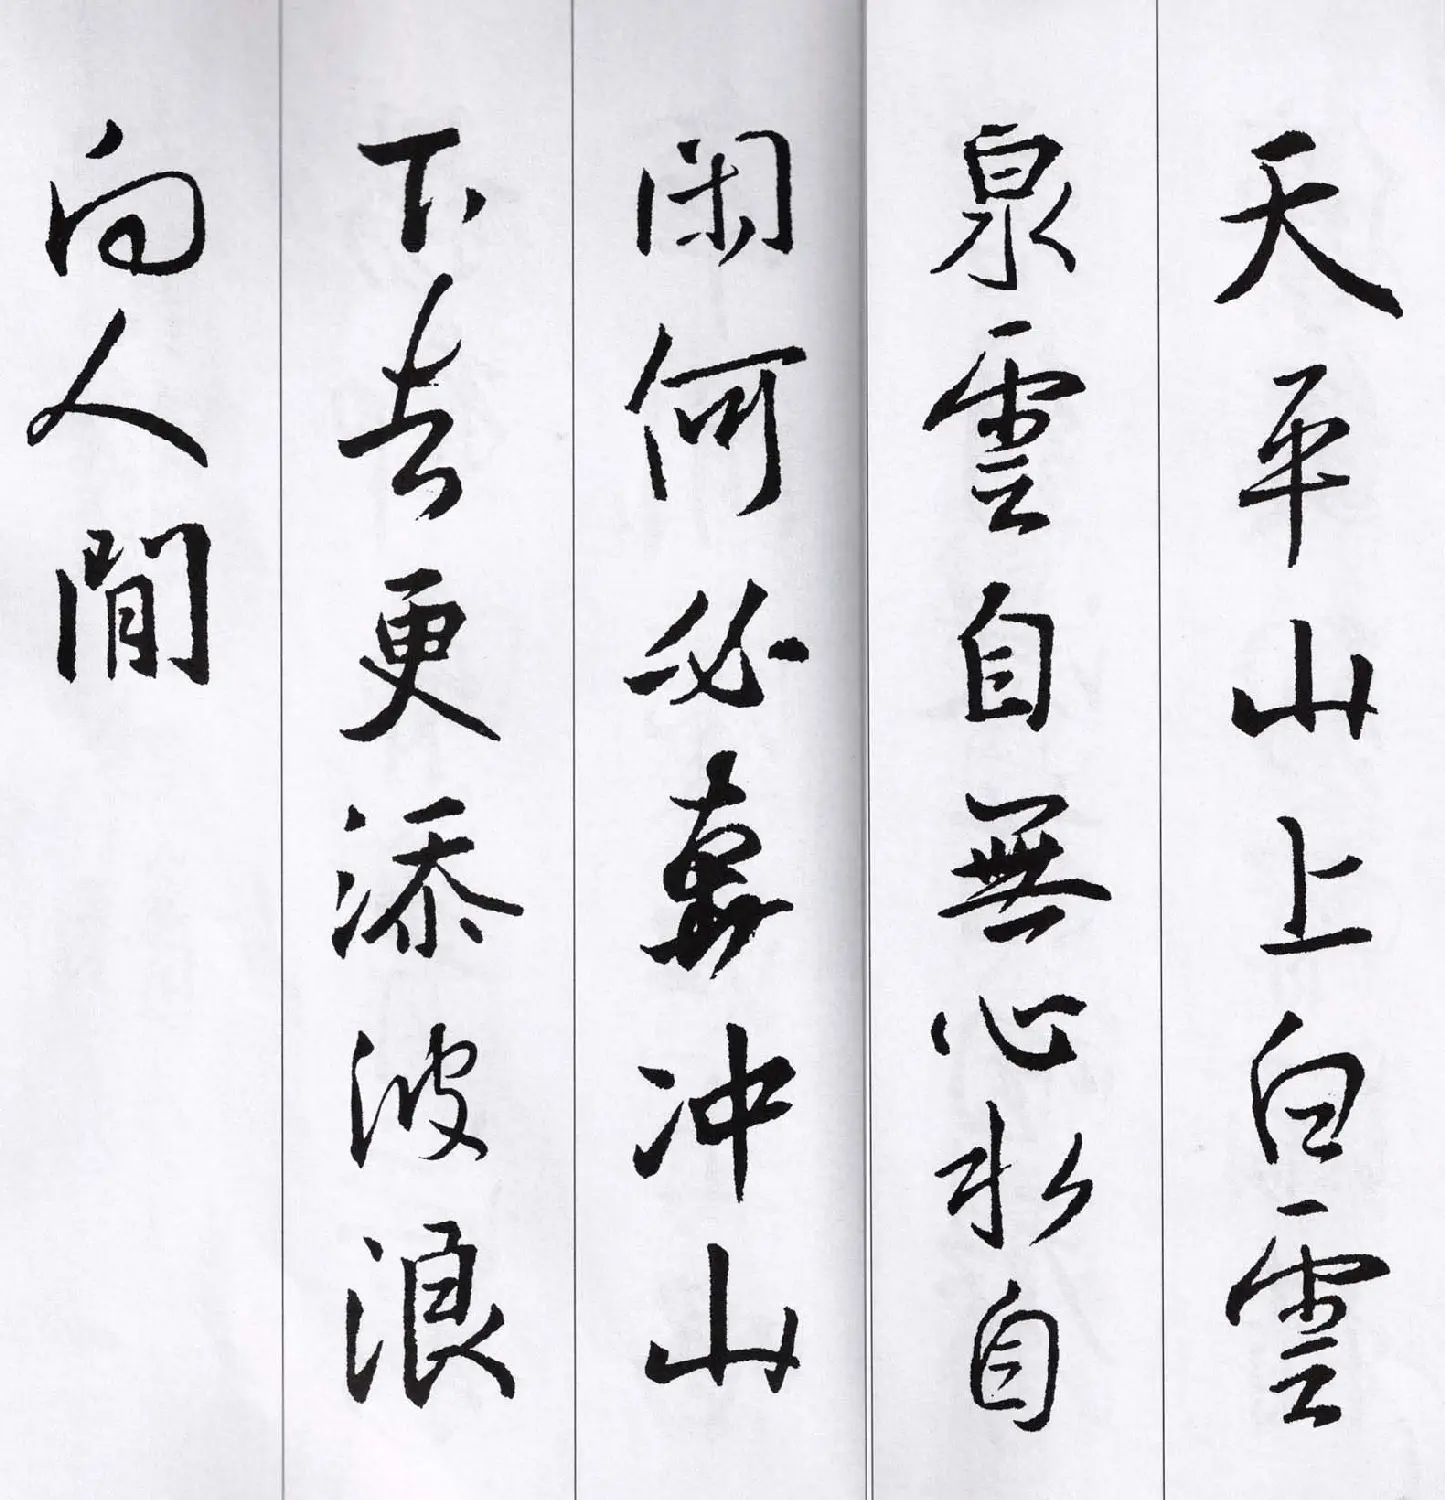 天平山上白雲
泉雲自無心水自
闲何必奔冲山
下去更添波浪
向人閒